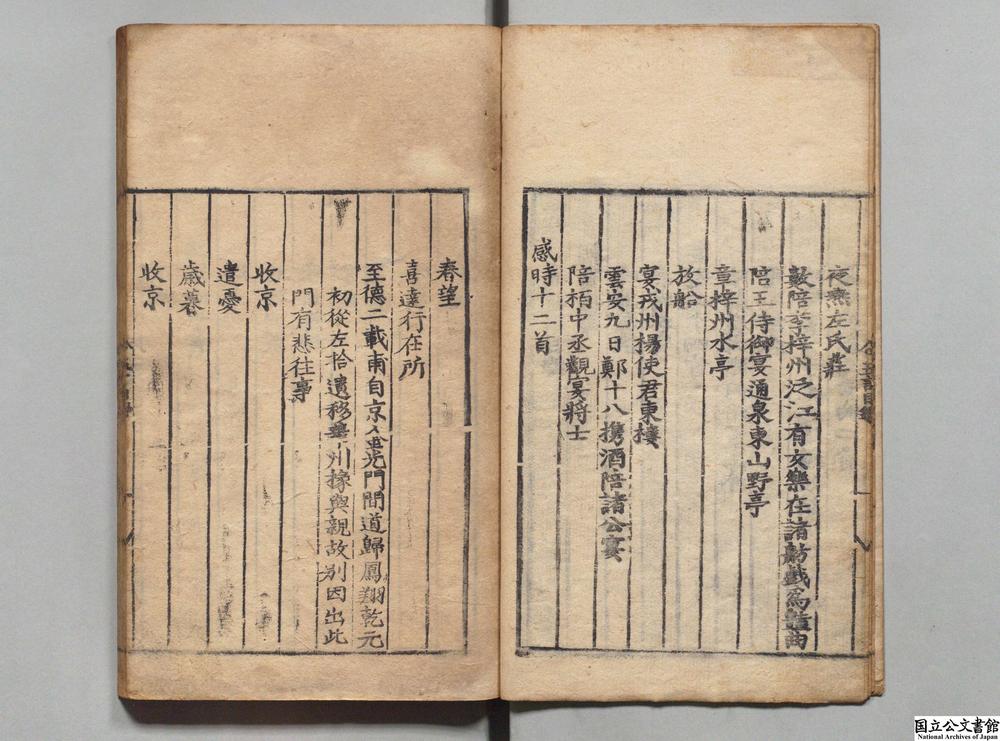 夜燕左氏莊
數陪李梓州泛江有女樂在諸舫戲為艷曲
陪王侍御宴通泉東山野亭
章梓州水亭
放船
宴戎州楊使君東樓
雲安九日鄭十八携酒陪諸公宴
陪栢中丞觀宴將士
感時十二首
春望
喜達行在所
至德二載甫自京金光門間道歸鳳翔乾元
初從左拾遺移華州掾與親故別因出此
門有悲往事
收京
遣憂
歲暮
收京
国立公文書館
National Archives of Japan